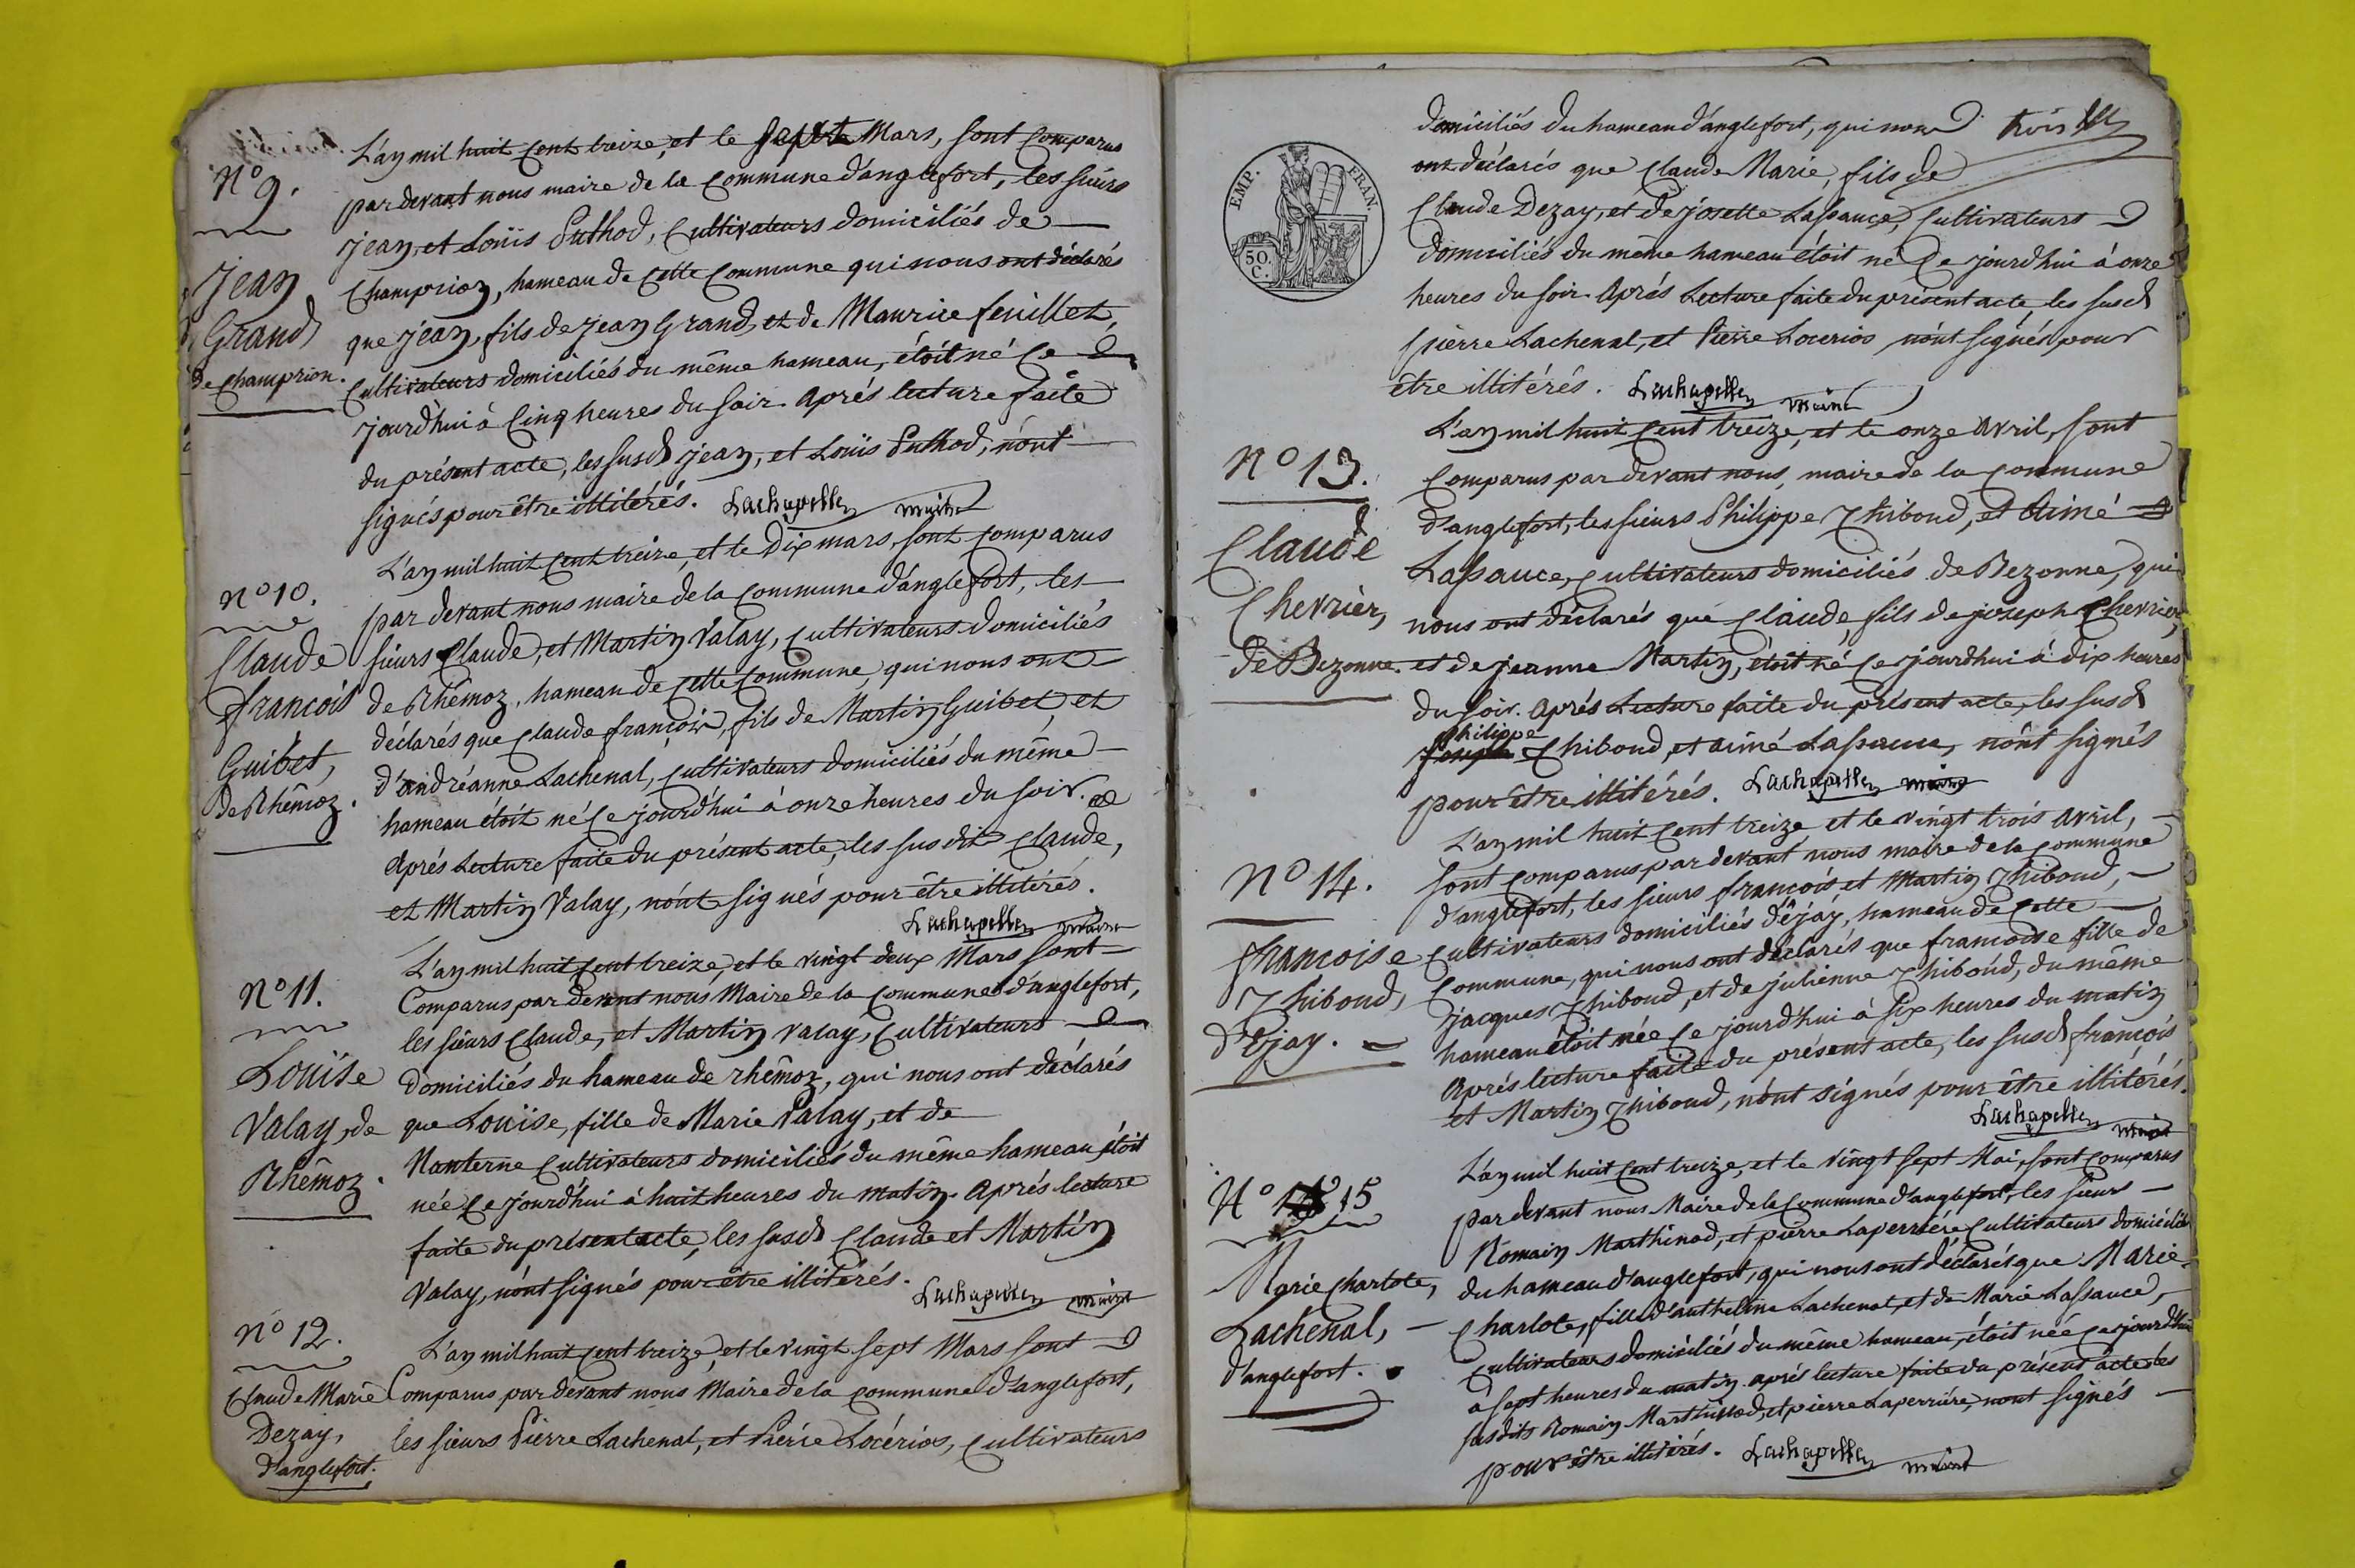 N° 9.
Jean
Grand
de Champrion.
L'an mil huit cent treize, et le Mars, sont comparus
par devant nous maire de la Commune d'anglefort, les sieurs
jean, et Louïs Puthod, Cultivateurs domiciliés de
Champrion, hameau de cette Commune qui nous ont déclarés
que jean, fils de jean Grand, et de Maurice feuillet,
Cultivateurs domiciliés du même hameau, étoit né ce
jourd'hui à Cinq heures du soir. Aprés lecture faite
du présent acte, les susd jean, et Louïs Puthod, n'ont
signés pour être illitérés. Lachapelle maire
N° 10.
Claude
françois
Guibet,
de Rhêmoz.
L'an mil huit Cent treize, et le Dix mars, sont comparus
par devant nous maire de la Commune d'anglefort, les
sieurs Claude, et Martin Valay, Cultivateurs domiciliés
de Rhêmoz, hameau de cette Commune, qui nous ont
déclarés que Claude françois, fils de Martin Guibet, et
d'andréanne Lachenal, Cultivateurs domiciliés du même
hameau étoit né ce jourd'hui à onze heures du soir.
Aprés Lecture faite du présent acte, les susdit Claude,
et Martin Valay, n'ont signés pour être illitérés.
Lachapelle maire
N° 11.
Louïse
Valay, de
Rhêmoz.
L'an mil huit Cent treize, et le vingt deux Mars sont
Comparus par devant nous Maire de la Commune d'anglefort,
les sieurs Claude, et Martin valay, Cultivateurs
domiciliés du hameau de rhêmoz, qui nous ont déclarés
que Louïse, fille de Marie Valay, et de
Nanterne Cultivateurs domiciliés du même hameau étoit
née ce jourd'hui à huit heures du matin. Aprés lecture
faite du présent acte, les susd Claude et Martin
Valay, n'ont signés pour être illitérés. Lachapelle maire
N° 12.
Claude Marie
Dezay,
d'anglefort.
L'an mil huit Cent treize, et le vingt sept Mars sont
Comparus par devant nous Maire de la Commune d'anglefort,
les sieurs Pierre Lachenal, et Pierre Locérios, Cultivateurs
EMP. FRAN.
50.
C.
domiciliés du hameau d'anglefort, qui nous trois
ont déclarés que Claude Marie, fils de
Claude Dezay, et de josette Lassauce, Cultivateurs
domiciliés du même hameau étoit né Ce jourd'hui à onze
heures du soir. Aprés Lecture faite du présent acte, les susd
pierre Lachenal, et Pierre Locerios n'ont signés pour
être illitérés. Lachapelle maire
N° 13.
Claude
Chevrier,
de Bezonne.
L'an mil huit Cent treize, et le onze Avril, sont
Comparus par devant nous, maire de la Commune
d'anglefort, les sieurs Philippe Thiboud, et Aimé
Lassauce, Cultivateurs domiciliés de Bezonne, qui
nous ont déclarés que Claude, fils de joseph Chevrier,
et de jeanne Martin, étoit né ce jourd'hui à dix heures
du soir. Aprés Lecture faite du présent acte, les susd
philippe
Thiboud, et aimé Lassauce, n'ont signés
pour être illitérés. Lachapelle maire
N° 14.
francoise
Thiboud,
d'Ejay.
L'an mil huit Cent treize et le vingt trois avril,
sont comparus par devant nous maire de la commune
d'anglefort, les sieurs françois et Martin Thiboud,
Cultivateurs domiciliés d'éjay, hameau de cette
Commune, qui nous ont déclarés que francoise fille de
jacques Thiboud, et de julienne Thiboud, du même
hameau étoit née ce jourd'hui à six heures du matin
Aprés lecture faite du présent acte, les susd françois
et Martin Thiboud, n'ont signés pour être illitérés.
Lachapelle maire
N° 15
Marie Charlote,
Lachenal,
d'anglefort.
L'an mil huit Cent treize, et le vingt sept Mai, sont comparus
par devant nous Maire de la Commune d'anglefort, les sieurs
Romain Marthinod, et pierre Laperriére Cultivateurs domiciliés
du hameau d'anglefort, qui nous ont déclarés que Marie
Charlote, fille d'anthelme Lachenal, et de Marie Lassauce,
cultivateurs domiciliés du même hameau, étoit née ce jourd'hui
à sept heures du matin. aprés lecture faite du présent acte les
susdits Romain Marthinod, et pierre Laperriére, n'ont signés
pour être illitérés. Lachapelle maire